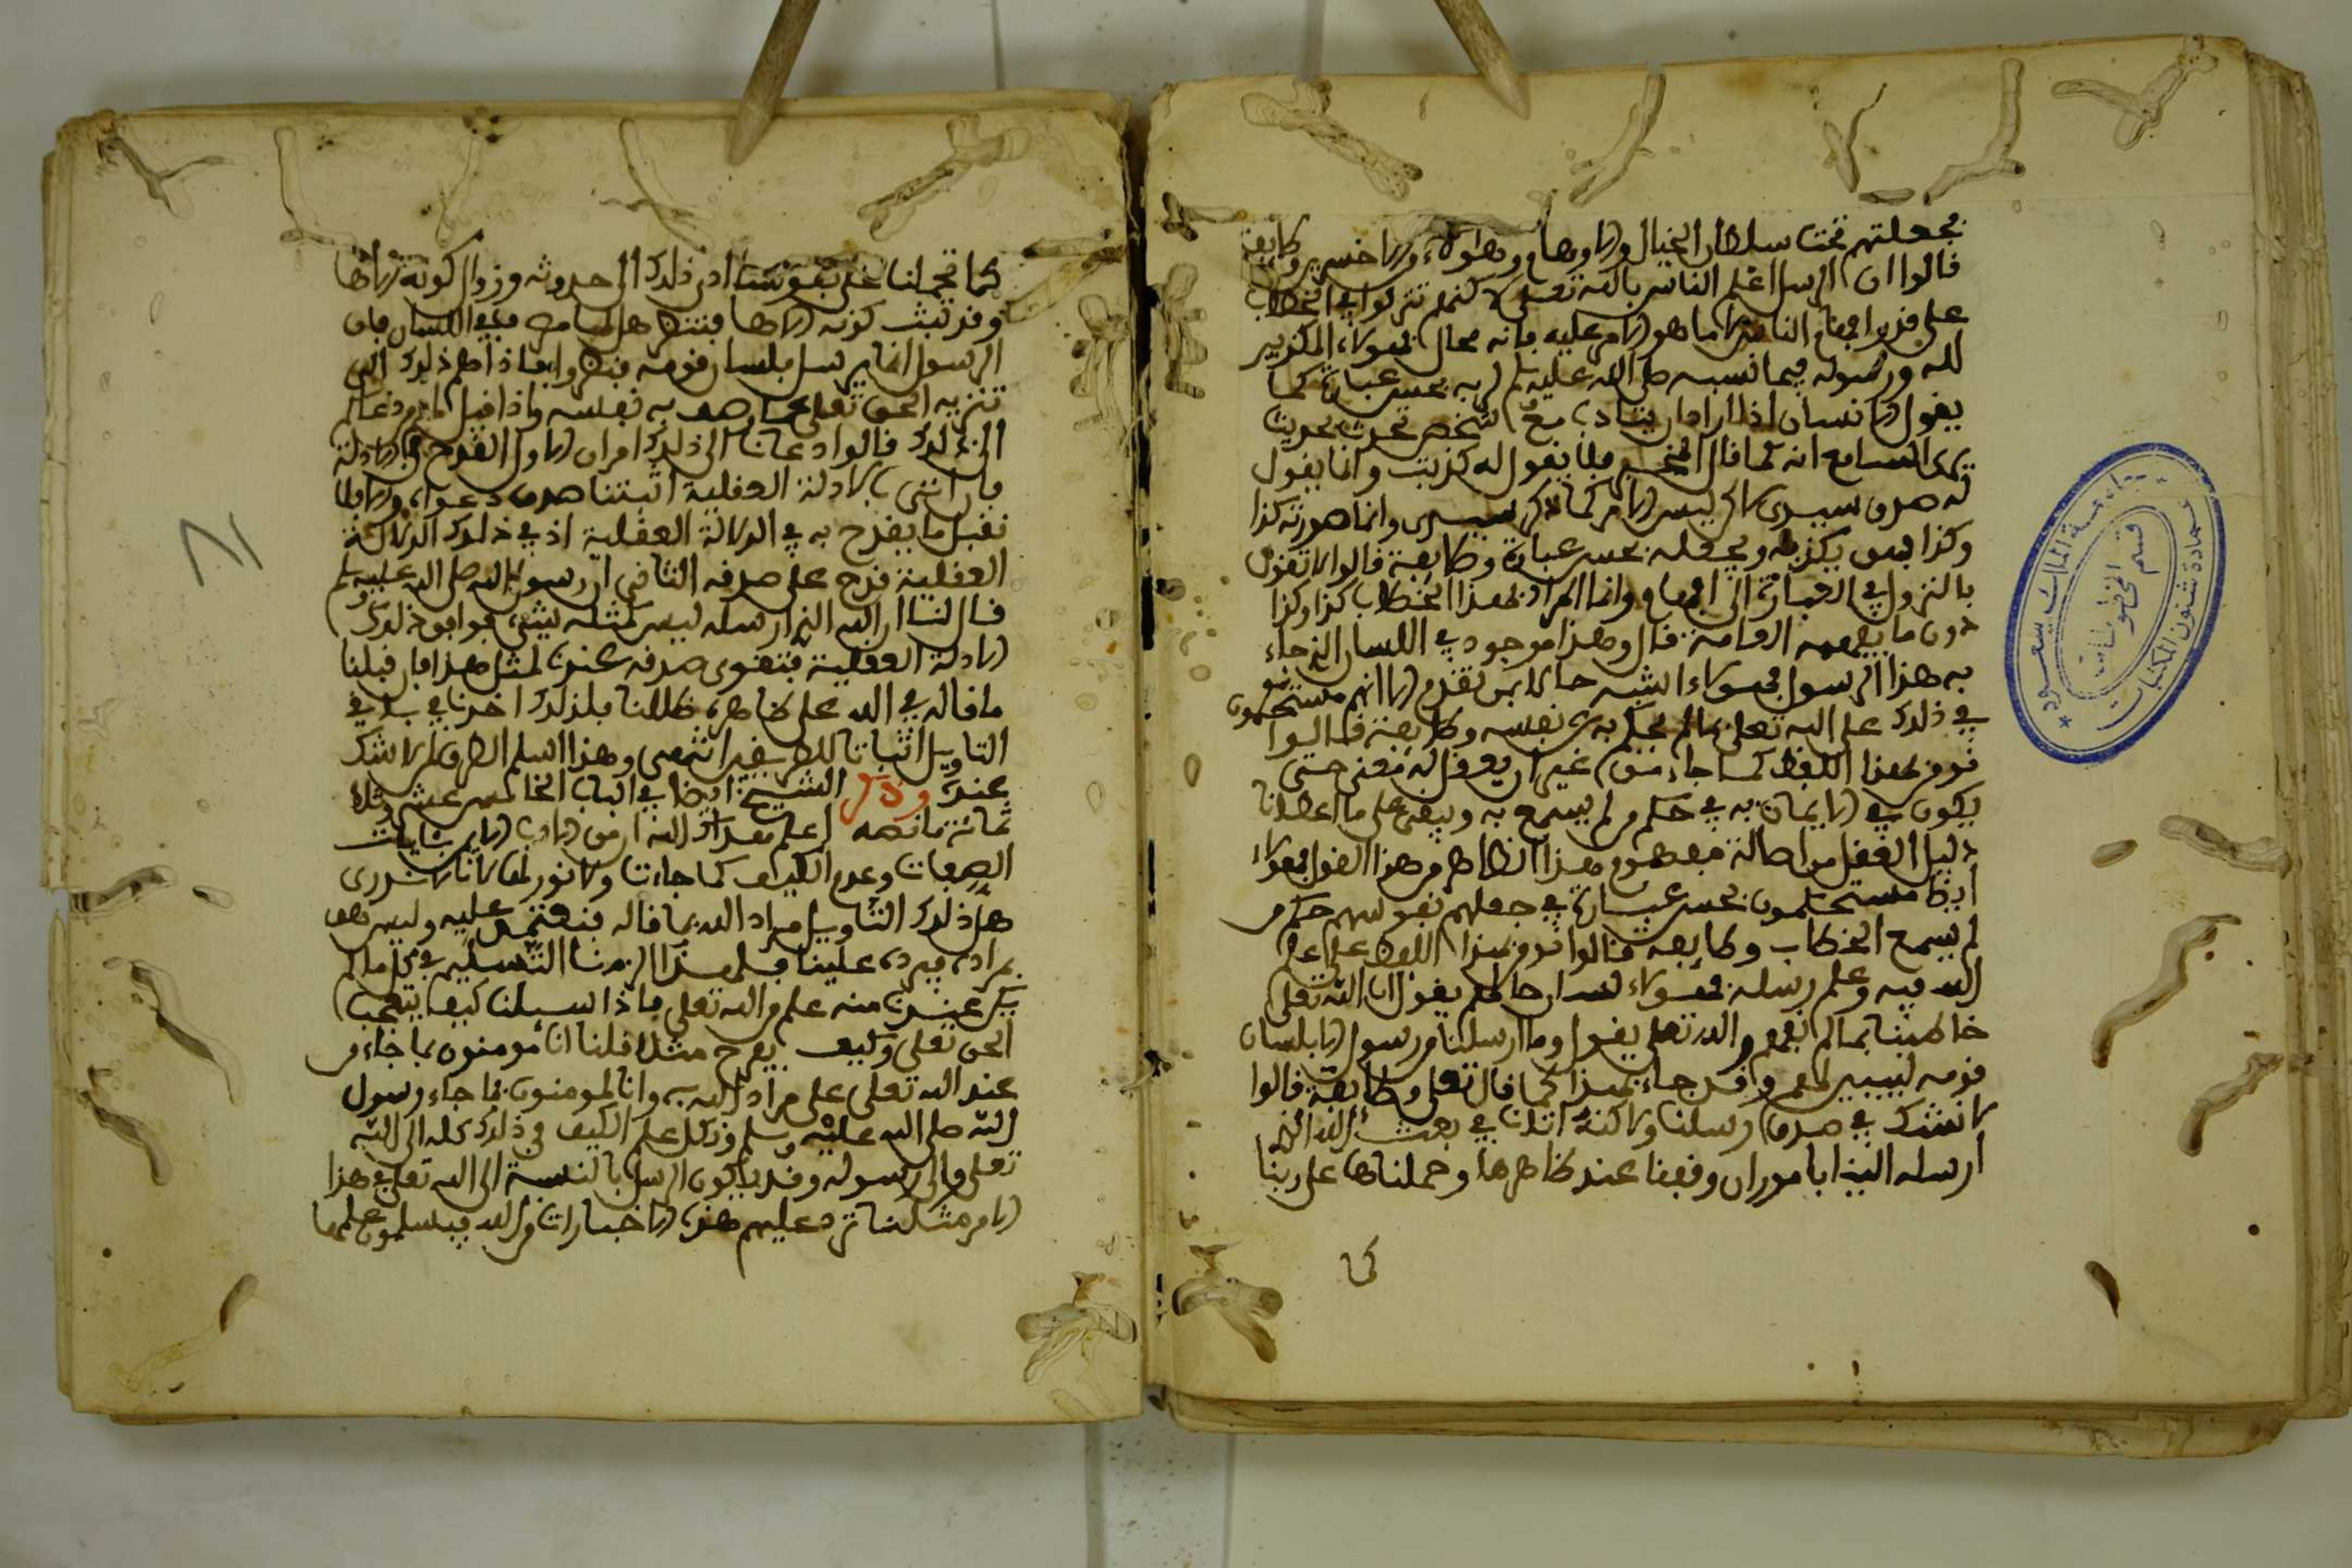 بجعلتهم تحت سلطان الخيال والاوهام وهاولاء والاخسرين وطايفة
قالوا ان الرسل اعلم الناس بالله تعلى لاكنهم تنزلوا في الخطاب
على قدر افهام الناس لا ما هو الامر عليه فانه محال فهولاء المكذبين
لله ورسوله فيما نسبه صلى الله عليه وسلم لربه بحسن عبارة كما
يقول الانسان اذا اراد ان يتادب مع شخص تحدث بحديث
يرى السامع انه كما قال المخبر فلا يقول له كذبت وانما يقول
له صدق سيدي لاكن ليس الامر كما ذكر سيدي وانما صورته كذا
وكذا فهو يكذبه ويجهله بحسن عبارة وطايفة قالوا لا تقول
بالنزول في العبارة الى افهام وانما المراد بهذا الخطاب كذا وكذا
دون ما يفهمه العامة قال وهذا موجود في اللسان الذي جاء
به هذا الرسول فهولاء اشبه حالا ممن تقدم الا انهم متحكمون
في ذلك على الله تعلى بما لم يحكم به على نفسه وطايفة قالوا
نومن بهذا اللفظ كما جاء من غير ان يعقل له معنى حتى
يكون في الايمان به في حكم من لم يسمع به ونبقى على ما اعطانا
دليل العقل من احالة مفهوم هذا الظاهر من هذا القول فهولاء
ايضا متحكمون بحسن عبارة في جعلهم نفوسهم حكم من
لم يسمع الخطاب وطايفة قالوا نومن بهذا اللفظ على علم
الله فيه وعلم رسله فهولاء لسان حالهم يقول ان الله تعلى
خاطبنا بما لم نفهم والله تعلى يقول وما ارسلنا من رسول الا بلسان
قومه ليبين لهم وقد جاء بهذا كما قال تعلى وطايفة قالوا
لا نشك في صدق رسلنا ولاكنه اتانا في نعت الله الذي
ارسله الينا بامور ان وقفنا عند ظاهرها وحملناها على ربنا
كما
كما تحملنا على نفوسنا ادى ذلك الى حدوثه وزوال كونه الاها
وقد ثبت كونه الاها فننظر هل لها مصرف في اللسان فان
الرسول انما يرسل بلسان قومه فنظروا فاذا ... ذلك الى
تنزيه الحق تعلى عما وصف به نفسه واذا قيل لهم من دعاكم
الى ذلك قالوا دعانا الى ذلك امران الاول القدح في الادلة
فاننا بالادلة العقلية اثبتنا صدق دعواه ولا
نقبل ما يقدح به في الدلالة العقلية اذ في ذلك الدلالة
العقلية قدح على صدقه الثاني ان رسول الله صلى الله عليه وسلم
قال لنا ان الله الذي ارسله ليس كمثله شيء فوافق ذلك
الادلة العقلية فتقوى صدقه عندنا بمثل هذا فان قبلنا
ما قاله في الله على ظاهره ضللنا فلذلك اخذنا في
التاويل اثباتا للطريقين انتهى وهذا اسلم الطرق بلا شك
عندي وقال الشيخ ايضا في الباب الخامس عشر وثلاث
مائة ما نصه اعلم هداك الله ان من الادب الايمان بايات
الصفات وعدم التكييف كما جاءت ولا نؤولها لانا لا ندري
هل ذلك التاويل مراد الله بما قاله فنعتمد عليه وليس هو
بمراده فيرده علينا فلهذا الزمنا التسليم في كل ما لم
يكن عندنا منه علم من الله تعلى فاذا سئلنا كيف يتعجب
الحق تعلى وكيف يفرح مثلا قلنا انا مومنون بما جاء من
عند الله تعلى على مراد الله به وانا لمومنون بما جاء رسول
الله صلى الله عليه وسلم ونكل علم الكيف في ذلك كله الى الله
تعلى والى رسوله وقد تكون الرسل بالنسبة الى الله تعلى في هذا
الامر مثلنا ترد عليهم هذه الاخبارات من الله فيسلمون علمها
جامعة الملك سعود
عمادة شئون المكتبات
قسم المخطوطات